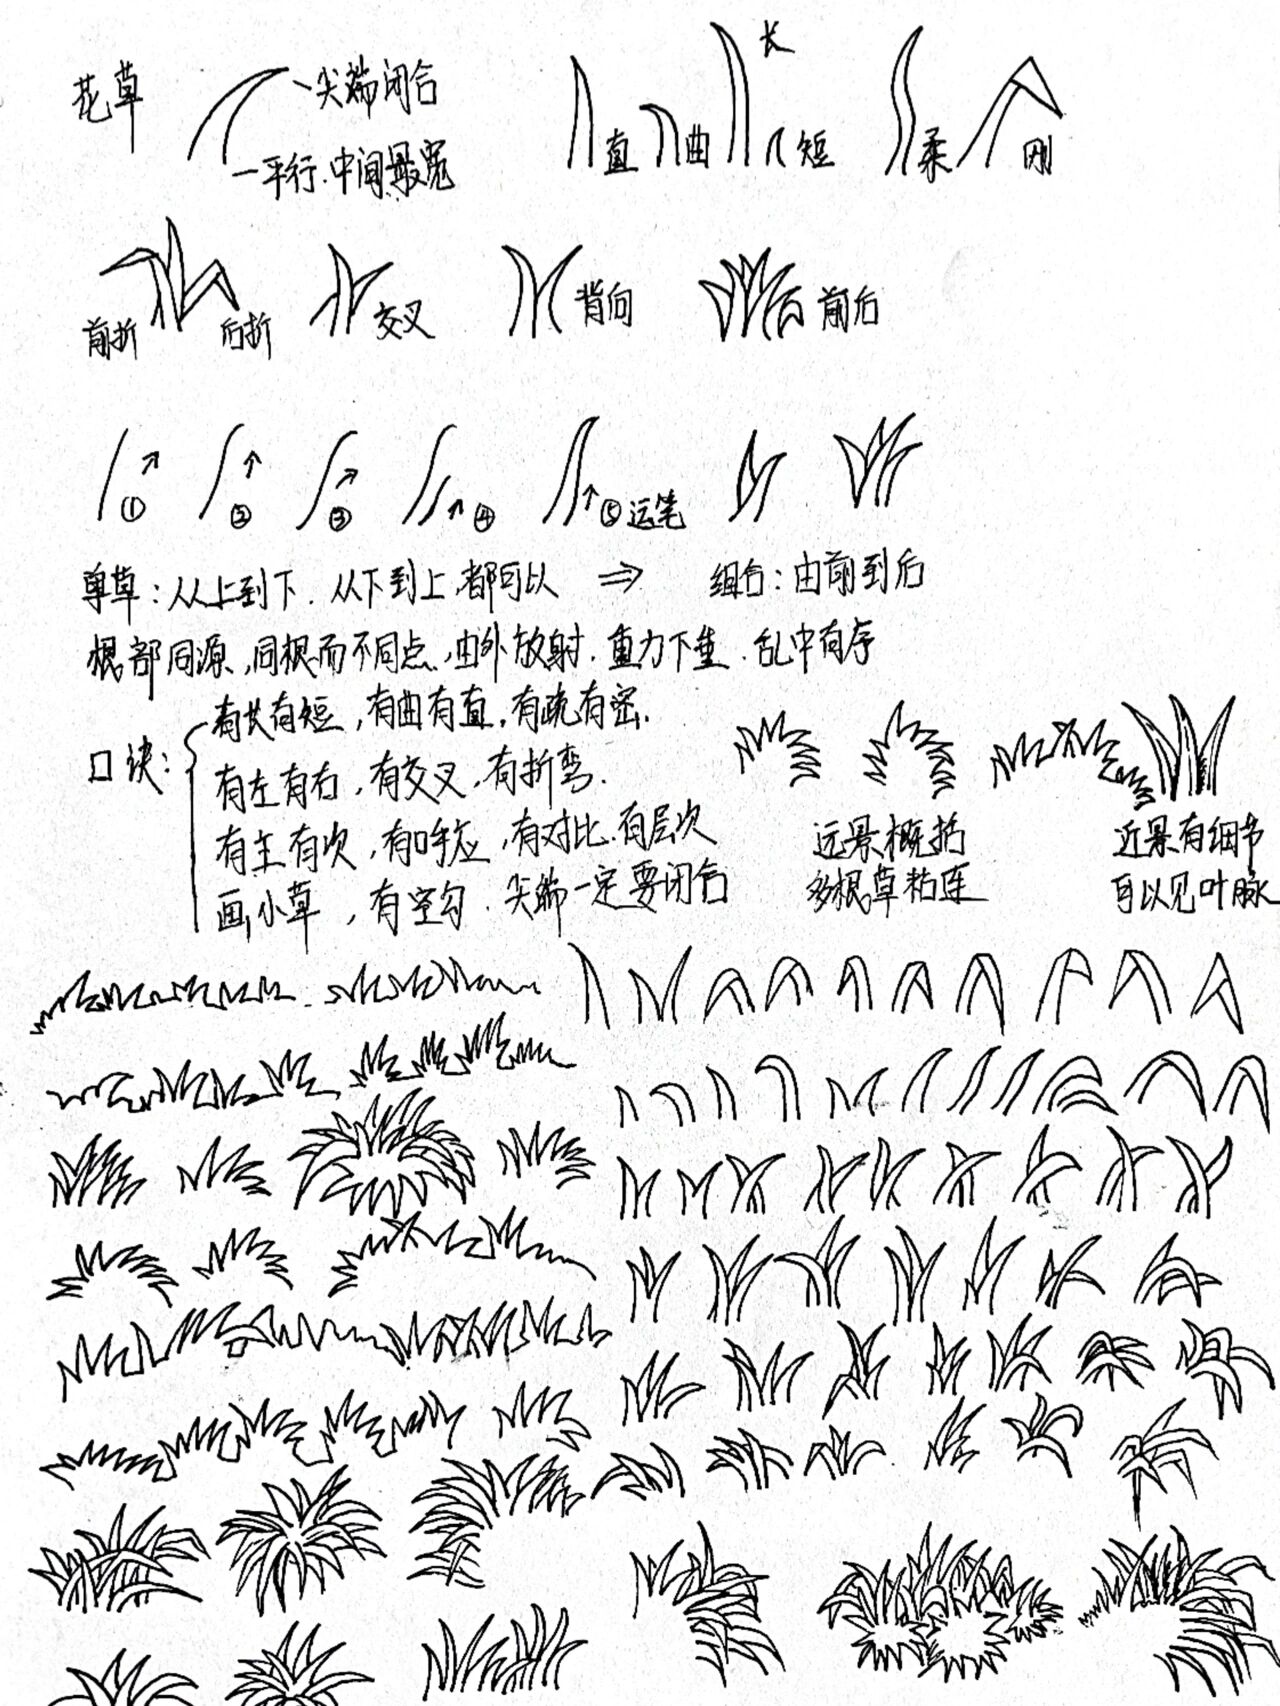 花草
尖端闭合
平行.中间最宽
直
曲
长
短
柔
刚
前折
后折
交叉
背向
前后
① ② ③ ④ ⑤运笔
单草:从上到下.从下到上,都可以 ⇒ 组合:由前到后
根部同源,同根而不同点,由外放射.重力下垂.乱中有序
口诀:
有长有短,有曲有直,有疏有密.
有左有右,有交叉,有折弯.
有主有次,有呼应,有对比.有层次
画小草,有空勾.尖端一定要闭合
远景概括
多根草粘连
近景有细节
可以见叶脉